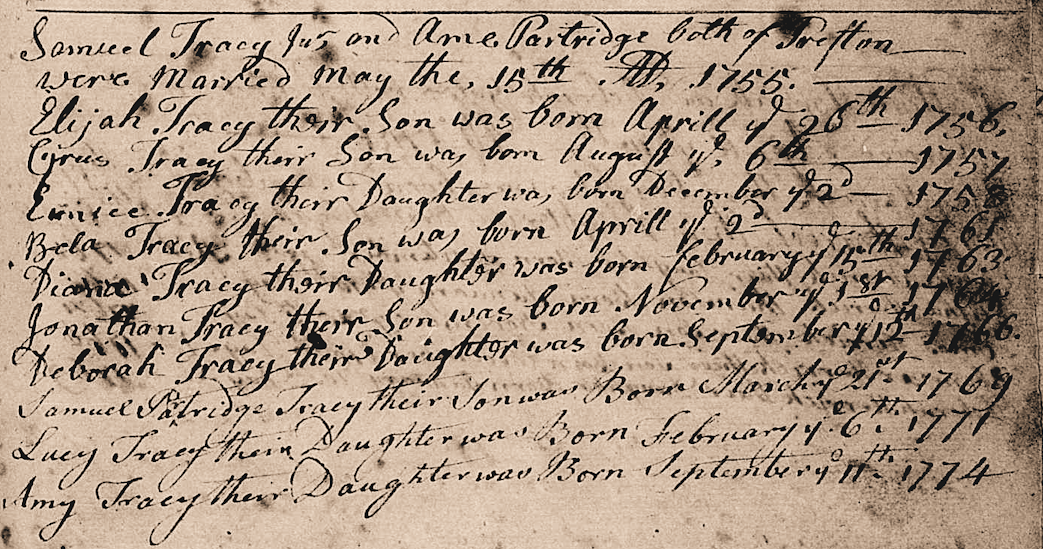 Samuel Tracy Jur and Ame Partridge both of Preston
were Married May the, 15th AD, 1755.
Elijah Tracy their Son was born Aprill ye 26th 1756.
Cyrus Tracy their Son was born August ye 6th 1757
Eunice Tracy their Daughter was born December ye 2d 1758
Bela Tracy their Son was born Aprill ye 2d 1761
Diana Tracy their Daughter was born february ye 15th 1763
Jonathan Tracy their Son was born November ye 1st 1764
Deborah Tracy their Daughter was born September ye 12th 1766.
Samuel Patridge Tracy their Son was Born March ye 21st 1769
Lucy Tracy their Daughter was Born February ye 6th 1771
Amy Tracy their Daughter was Born September ye 11th 1774